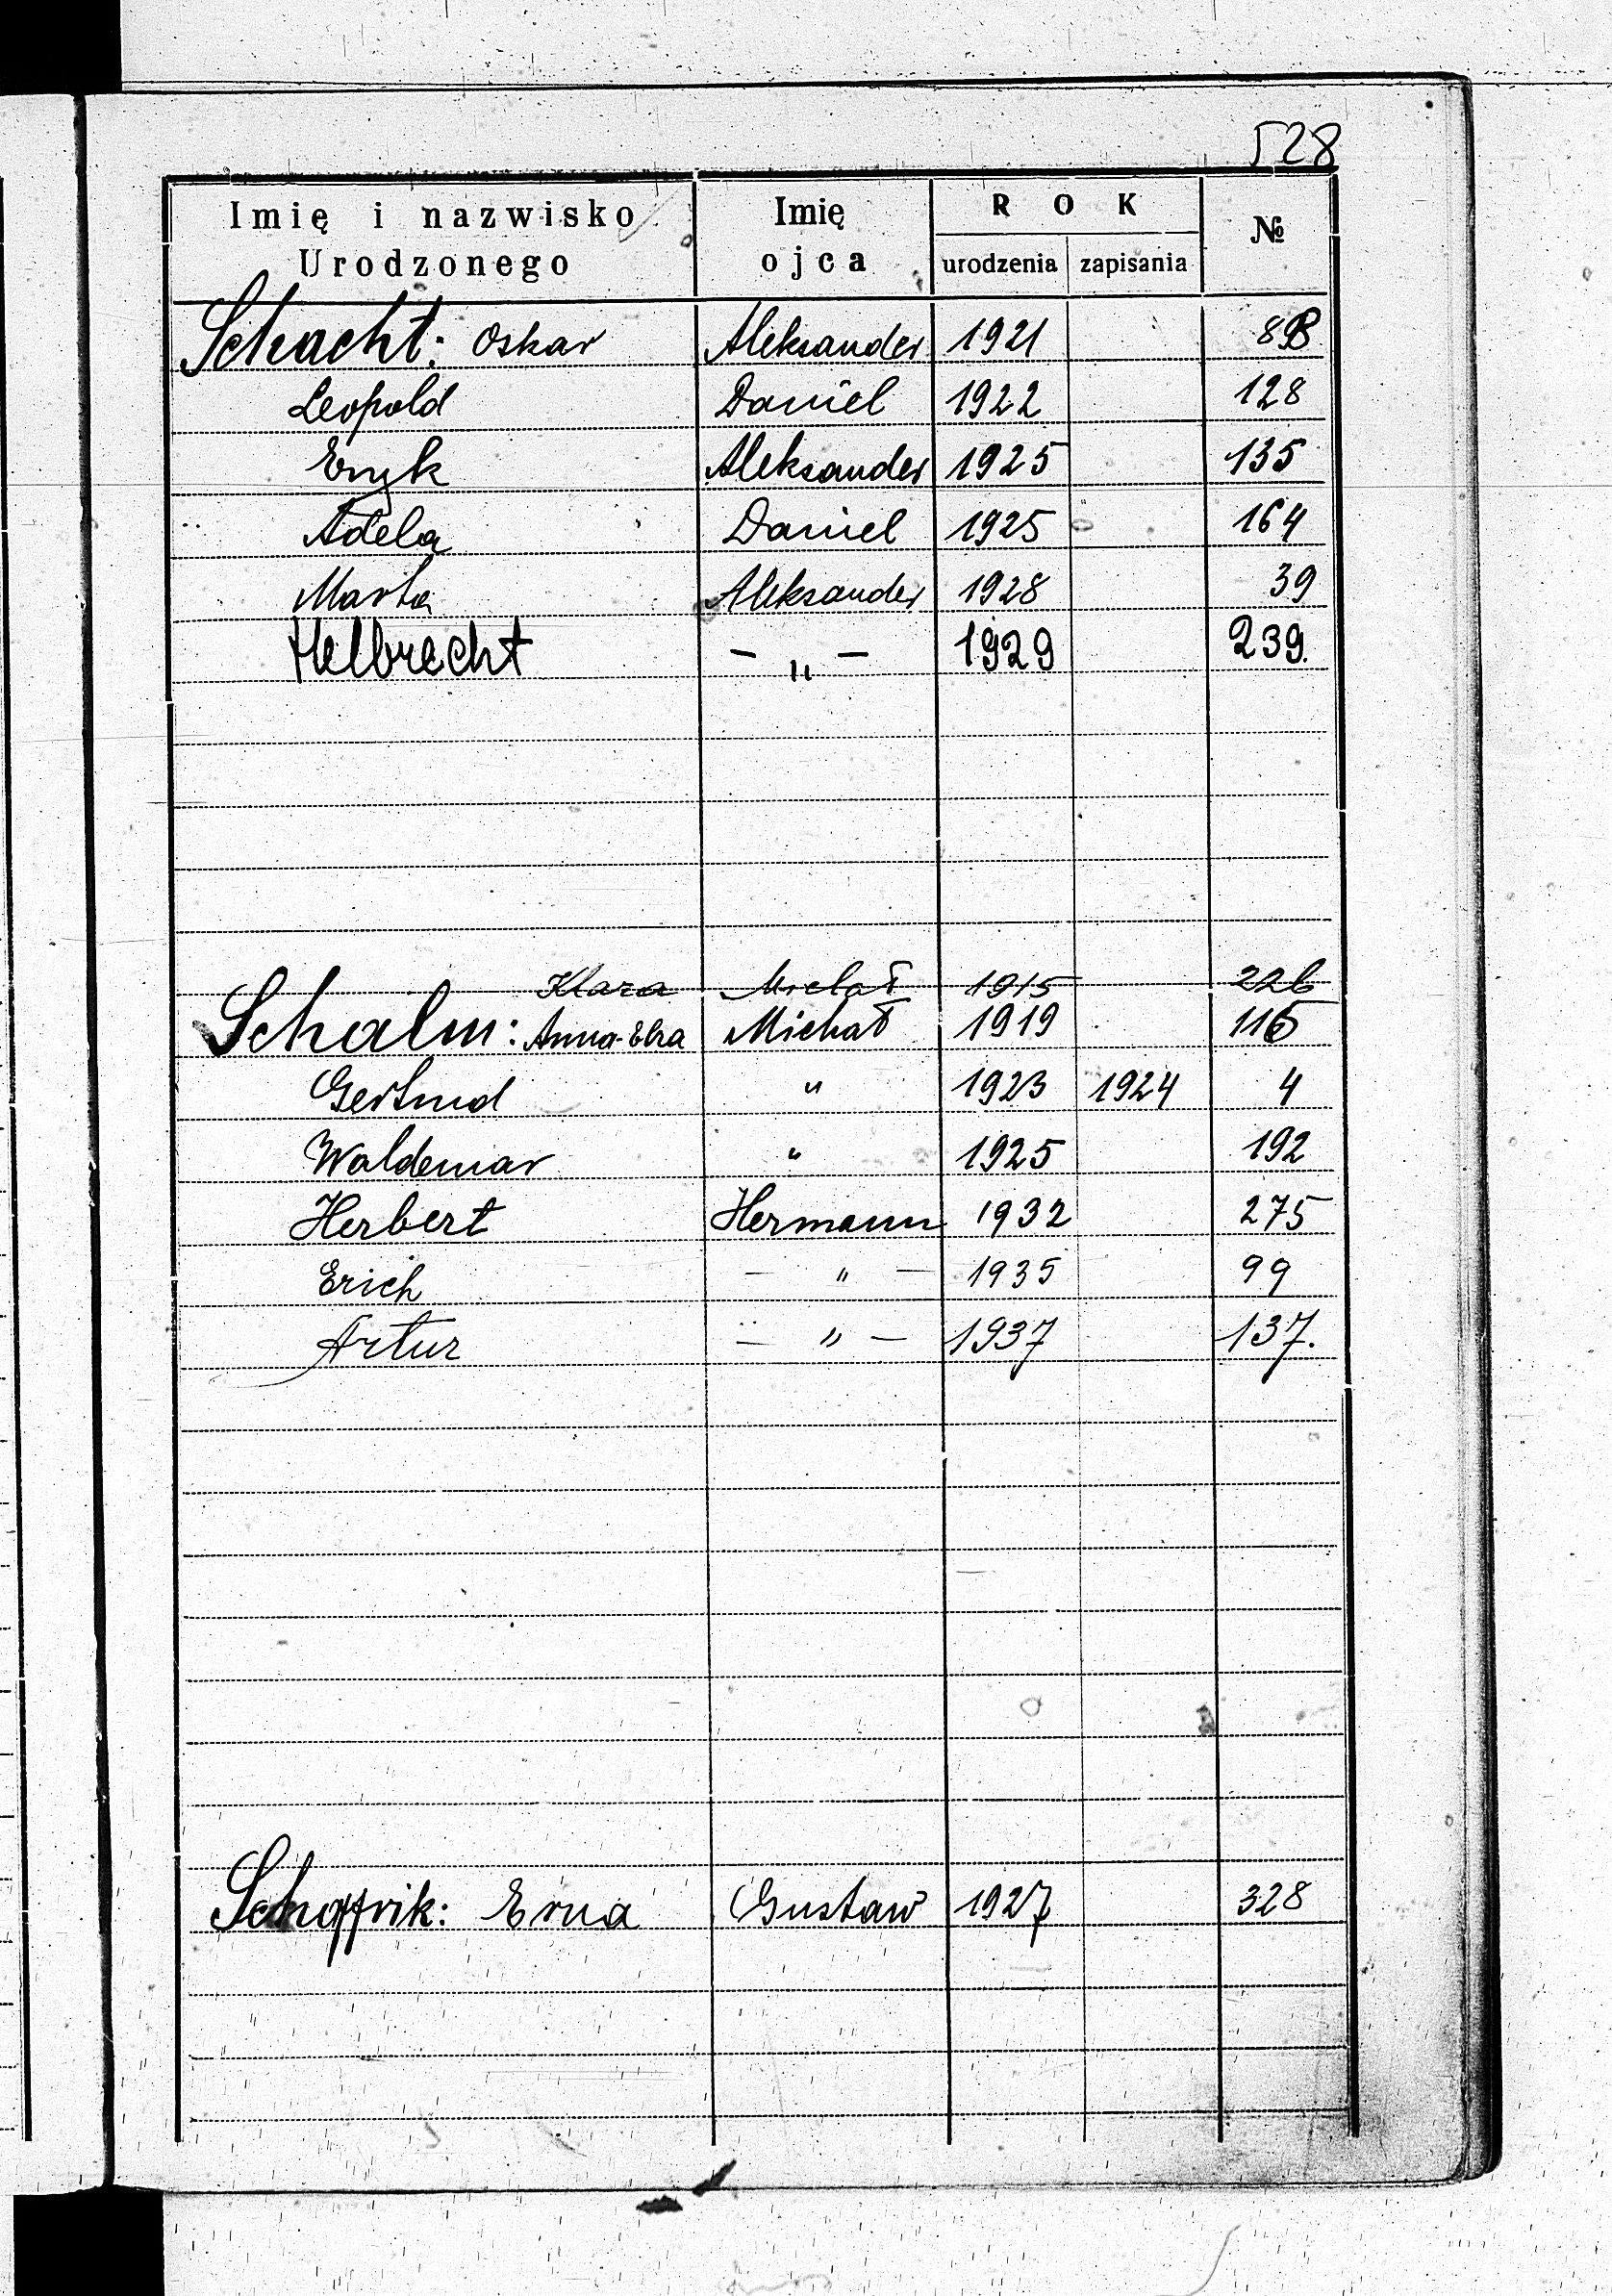 528
Imię i nazwisko Urodzonego Imię ojca ROK urodzenia zapisania №
Schacht: Oskar Aleksander 1921
Leopold Daniel 1922 128
Eryk Aleksander 1925 135
Adela Daniel 1925 164
Marta Aleksander 1928 39
Helbrecht — " — 1929 239.
Klara Michał 1915 226
Schalm: Anna-Elza Michał 1919 116
Gertrud " 1923 1924 4
Waldemar " 1925 192
Herbert Hermann 1932 275
Erich — " — 1935 99
Artur — " — 1937 137.
Erna Gustaw 1927 328